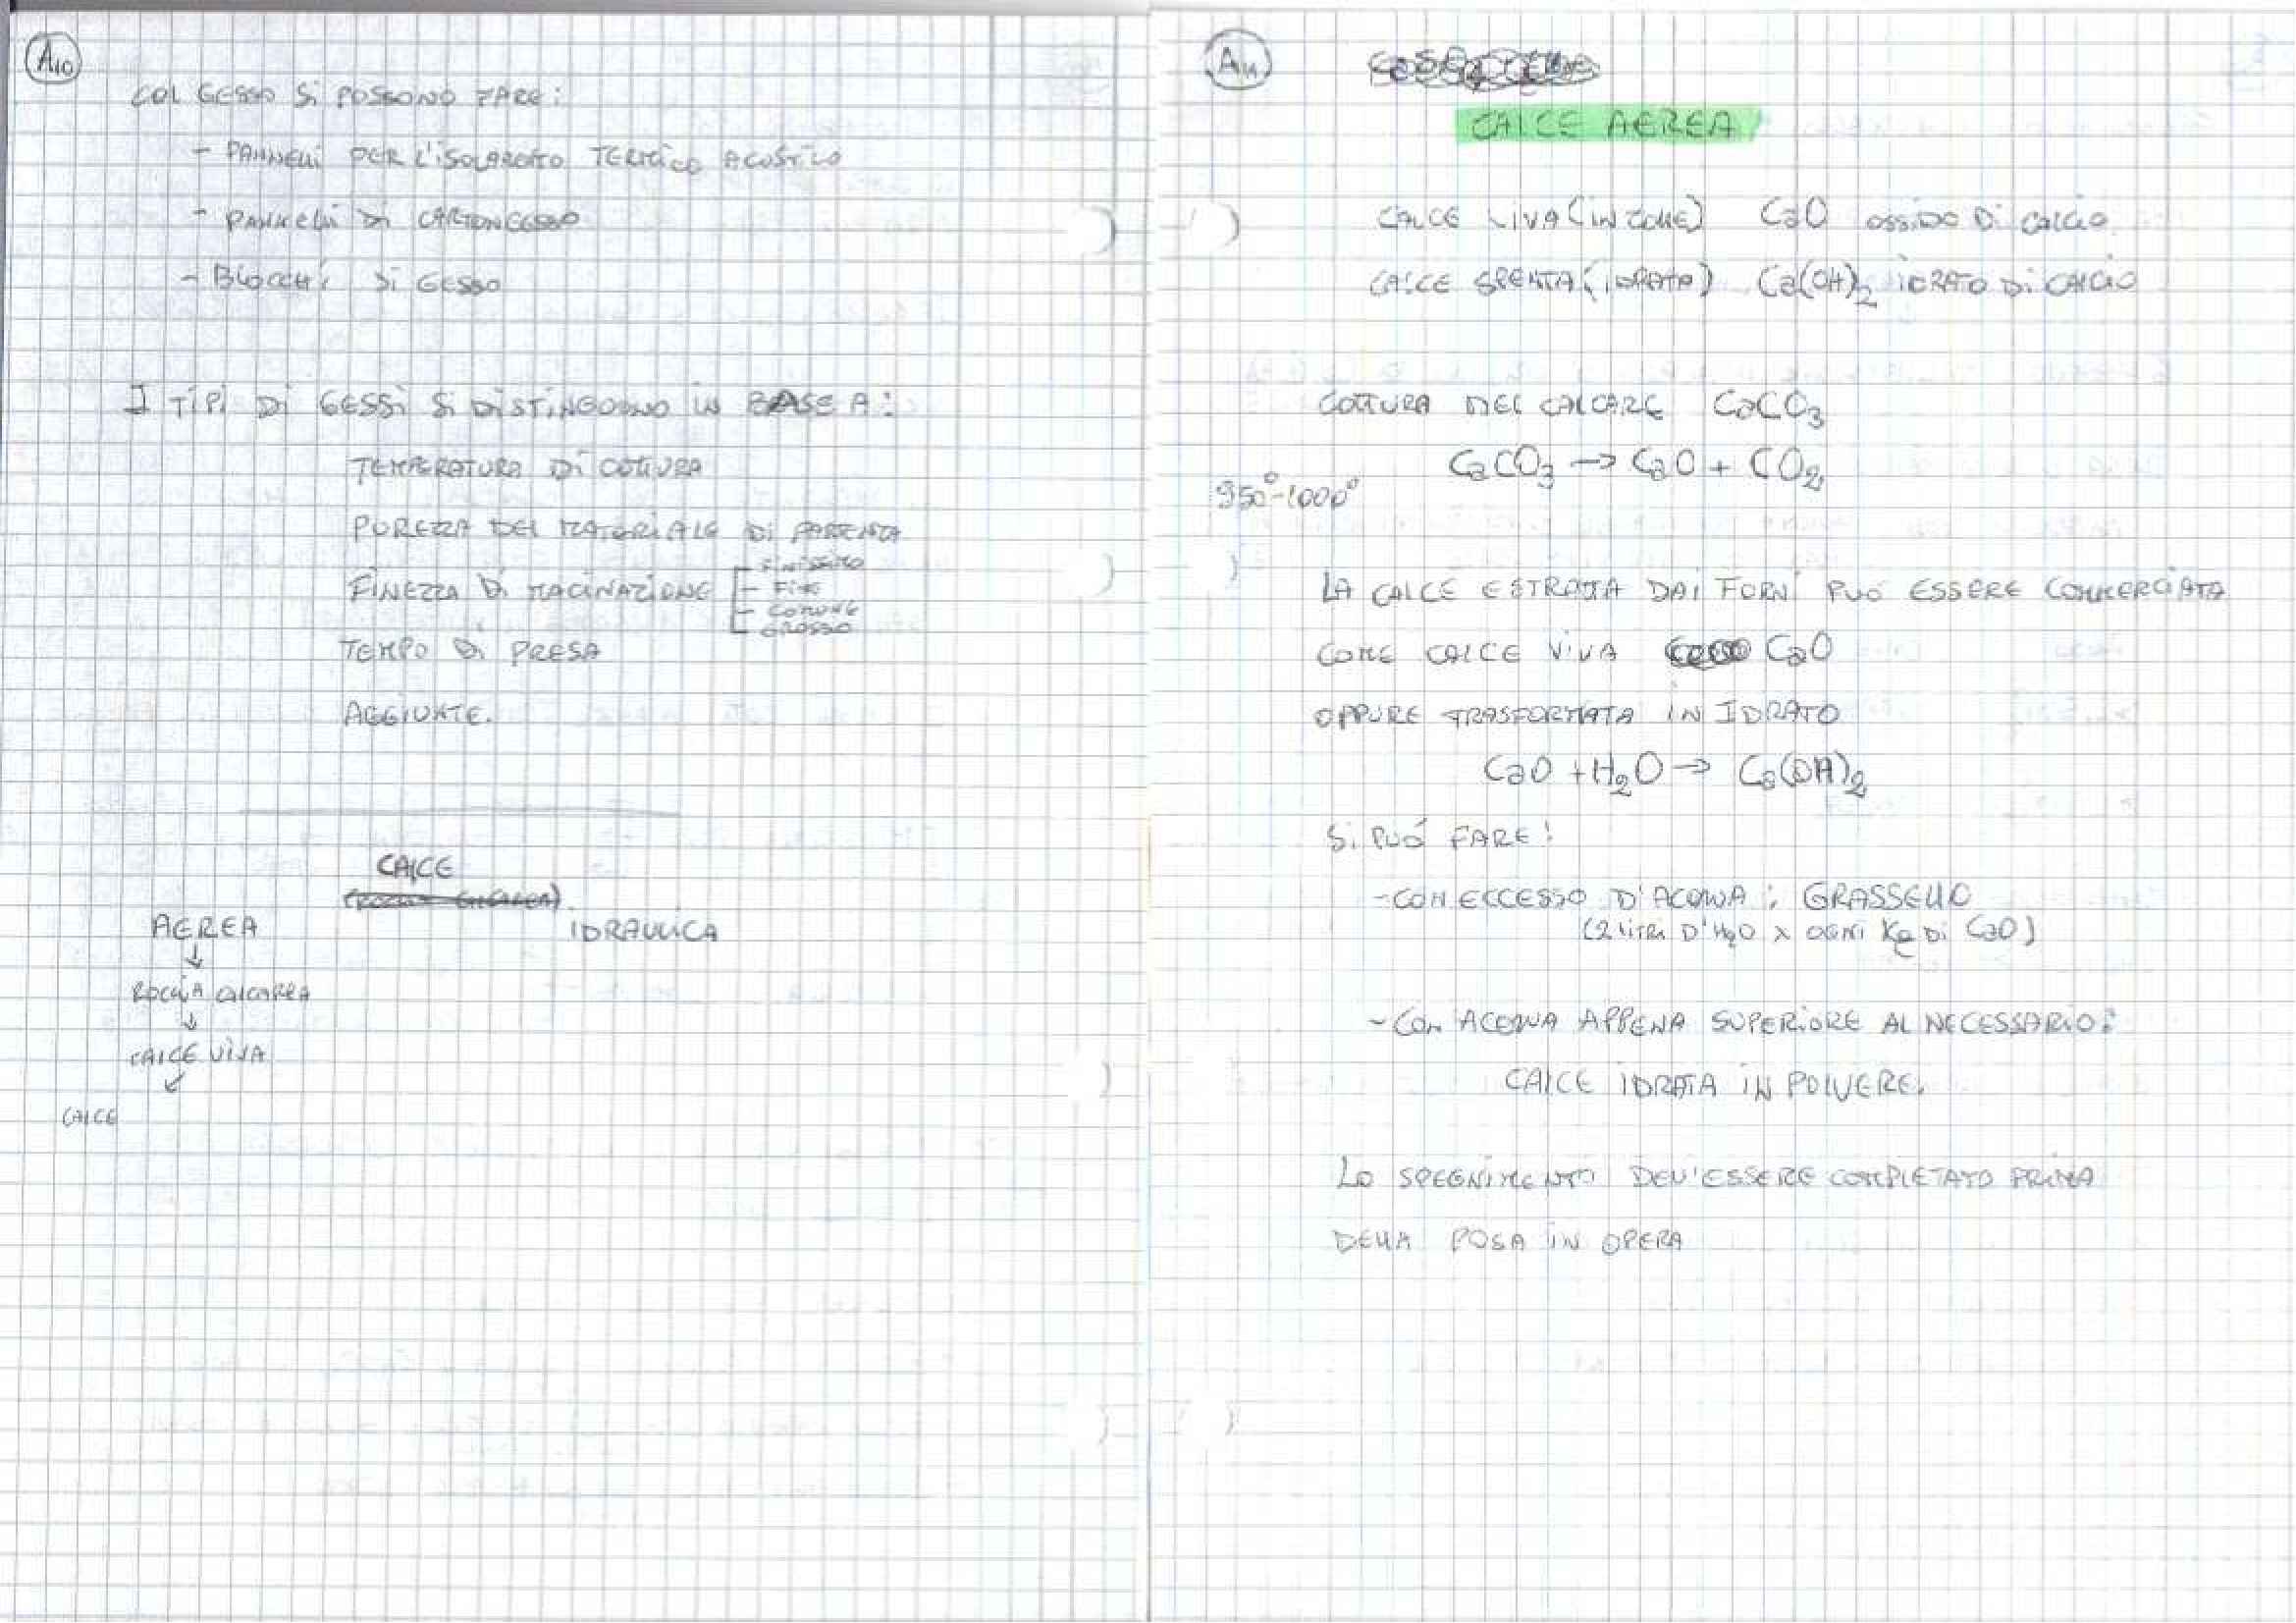 A10
COL GESSO SI POSSONO FARE:
- PANNELLI PER L'ISOLAMENTO TERMICO ACUSTICO
- PANNELLI DI CARTONGESSO
- BLOCCHI DI GESSO
I TIPI DI GESSI SI DISTINGUONO IN BASE A:
TEMPERATURA DI COTTURA
PUREZZA DEL MATERIALE DI PARTENZA
FINEZZA DI MACINAZIONE
- FINISSIMO
- FINE
- COMUNE
- GROSSO
TEMPO DI PRESA
AGGIUNTE.
CALCE
AEREA
IDRAULICA
↓
ROCCIA CALCAREA
↓
CALCE VIVA
↙
CALCE
A11
CALCE AEREA
CALCE VIVA (IN ZOLLE) CaO OSSIDO DI CALCIO
CALCE SPENTA (IDRATA) Ca(OH)2 IDRATO DI CALCIO
COTTURA DEL CALCARE CaCO3
CaCO3 → CaO + CO2
950°-1000°
LA CALCE ESTRATTA DAI FORNI PUÓ ESSERE COMMERCIATA
COME CALCE VIVA CaO
OPPURE TRASFORMATA IN IDRATO
CaO + H2O → Ca(OH)2
SI PUÓ FARE:
- CON ECCESSO D'ACQUA: GRASSELLO
(2 LITRI D'H2O x OGNI Kg DI CaO)
- CON ACQUA APPENA SUPERIORE AL NECESSARIO:
CALCE IDRATA IN POLVERE.
LO SPEGNIMENTO DEV'ESSERE COMPLETATO PRIMA
DELLA POSA IN OPERA